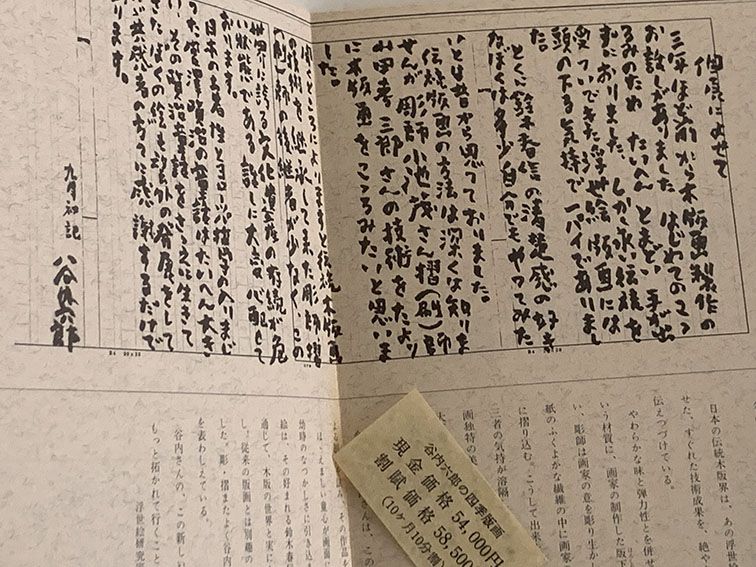 個展によせて
三年ほど前から木版画製作の
お話がありました はじめてのこころ
みのため たいへん とまどい 手が出
ずにおりました、しかし永い伝統を
受ついできた浮世絵版画には
頭の下る気持で一パイでありまし
た。
とくに鈴木春信の清楚感の好き
なぼくは多少自分でもやってみた
いとは昔から思っておりました。
伝統版画の方法は深くは知りま
せんが彫師
小池茂さん摺(刷)師
小田春三郎さんの技術をたより
に木版画をこころみたいと思いま
した。
ところによりますと伝統木版画
の技術を継承してきた彫師摺
(刷)師の後継者が少なくこの
世界に誇る文化遺産の存続が危
い状態である話しに大变心配して
おります。
日本の土着性とヨーロッパ哲学の入りまじ
った宮澤賢治の童話はたいへん大き
い その賢治童話をささえに生きて
きたぼくの絵も
意外の発展をして
共感者の方々に感謝するだけで
あります。
九月初記 谷内六郎
谷内六郎の四季版画
現金価格 54,000円
割賦価格 58,500
(10ヶ月10分割)
日本の伝統木版界は、あの浮世絵
せた、すぐれた技術成果を、絶や
伝えつづけている。
やわらかな味と弾力性とを併せ
いう材質に、画家の制作した版下
い、彫師は画家の意を彫り生か
紙のふくよかな繊維の中に画家
に摺り込む。こうして出来
三者の気持が溶融
画独特の美
その作品を
はほえましい童心が画面に
幼時のなつかしさに引き込ま
絵は、その好まれる鈴木春
通じて、木版の世界と実に
し、従来の版画とは別趣の
した。彫、摺またよく谷内
を表わしえている。
谷内さんの、この新しい
もっと拓かれて行くこと
浮世絵研究家